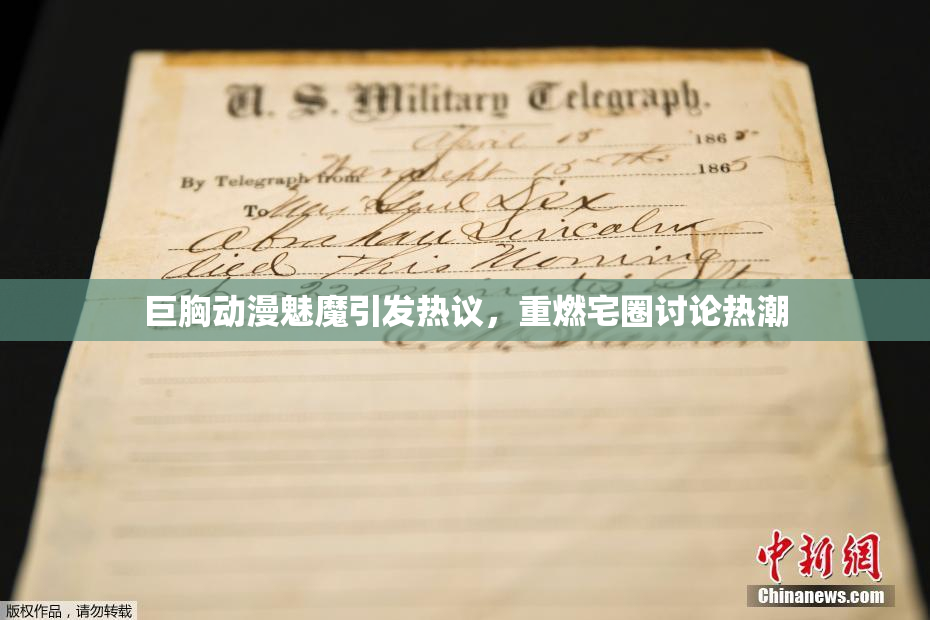 U. S. Military Telegraph.
April 15 1865
By Telegraph from War Dept 15th 1865
To Maj Genl Dix
Abraham Lincoln
died This Morning
at 22 minutes after
巨胸动漫魅魔引发热议，重燃宅圈讨论热潮
E. M. Stanton
中新网
Chinanews.com
版权作品，请勿转载